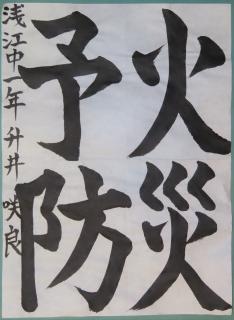 火災
予防
浅江中一年 升井 咲良